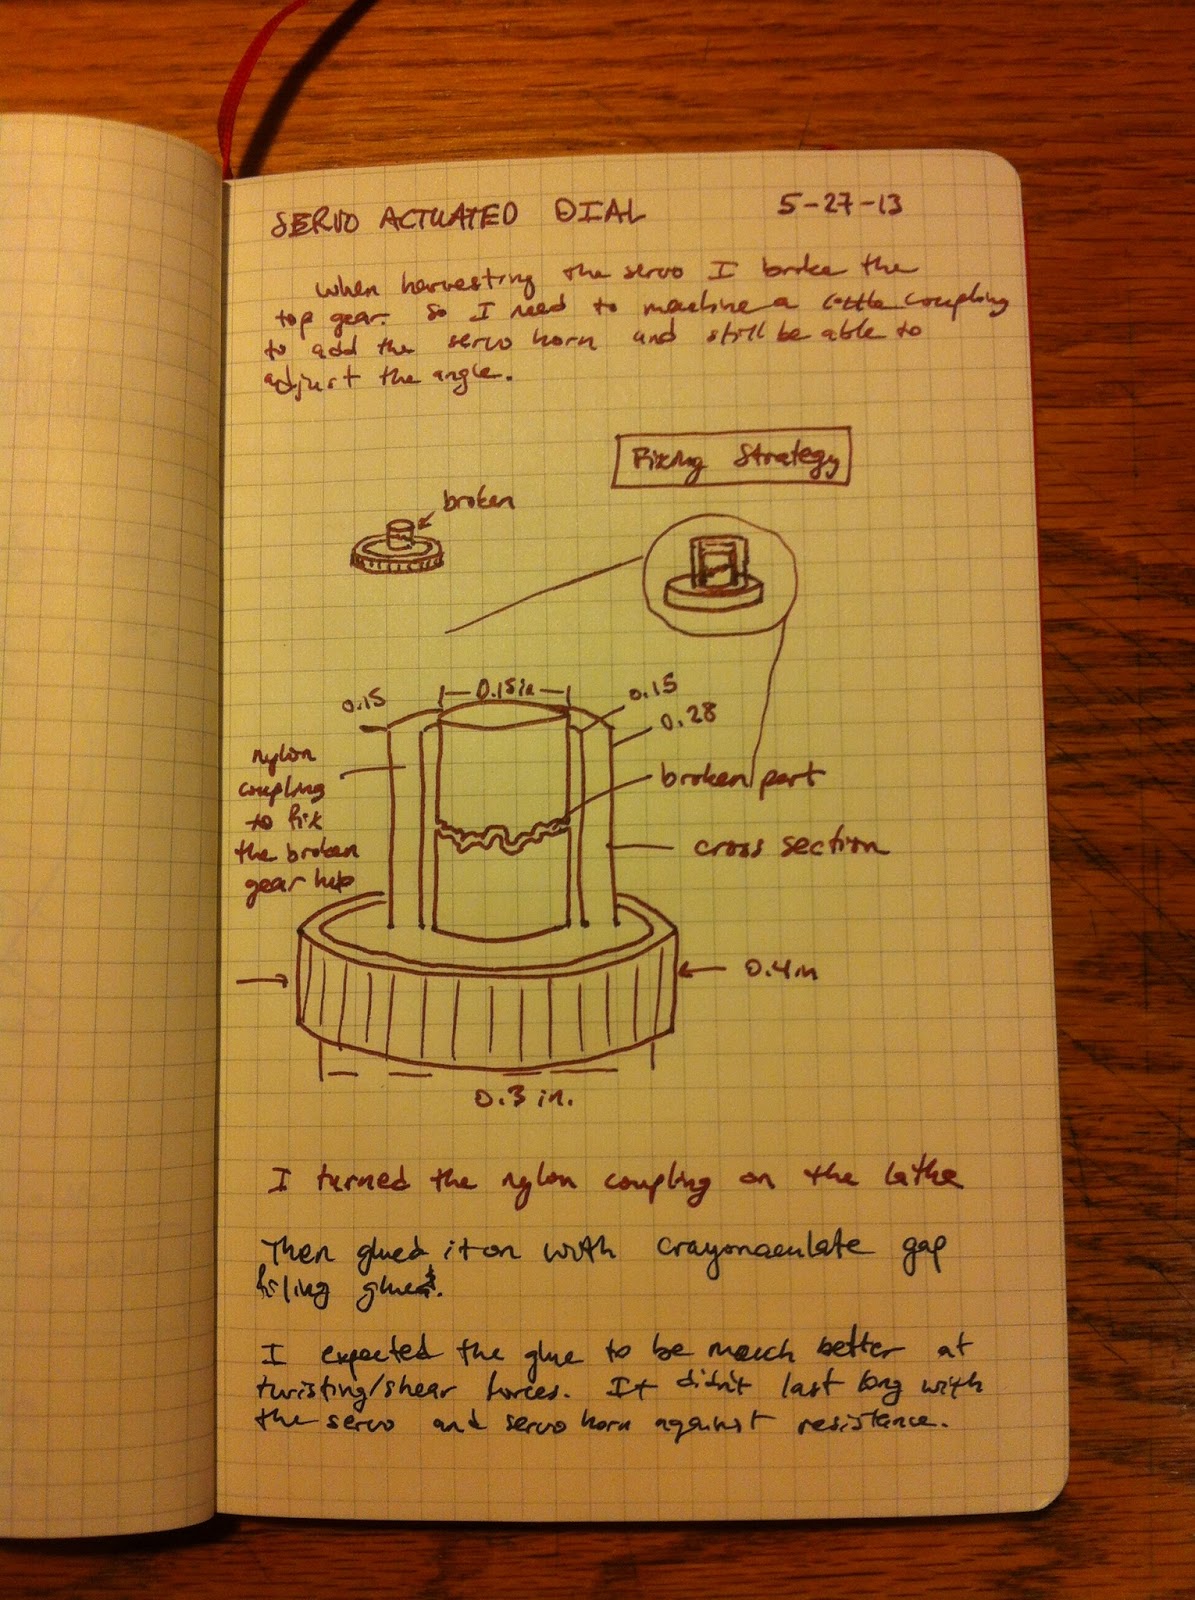 SERVO ACTUATED DIAL 5-27-13
When harvesting the servo I broke the
top gear. So I need to machine a little coupling
to add the servo horn and still be able to
adjust the angle.
Fixing Strategy
broken
0.15
0.15in
0.15
0.28
nylon
coupling
to fix
the broken
gear hub
broken part
cross section
0.4in
0.3 in.
I turned the nylon coupling on the lathe
Then glued it on with crayonaculate gap
filing glue.
I expected the glue to be much better at
twisting/shear forces. It didn't last long with
the servo and servo horn against resistance.